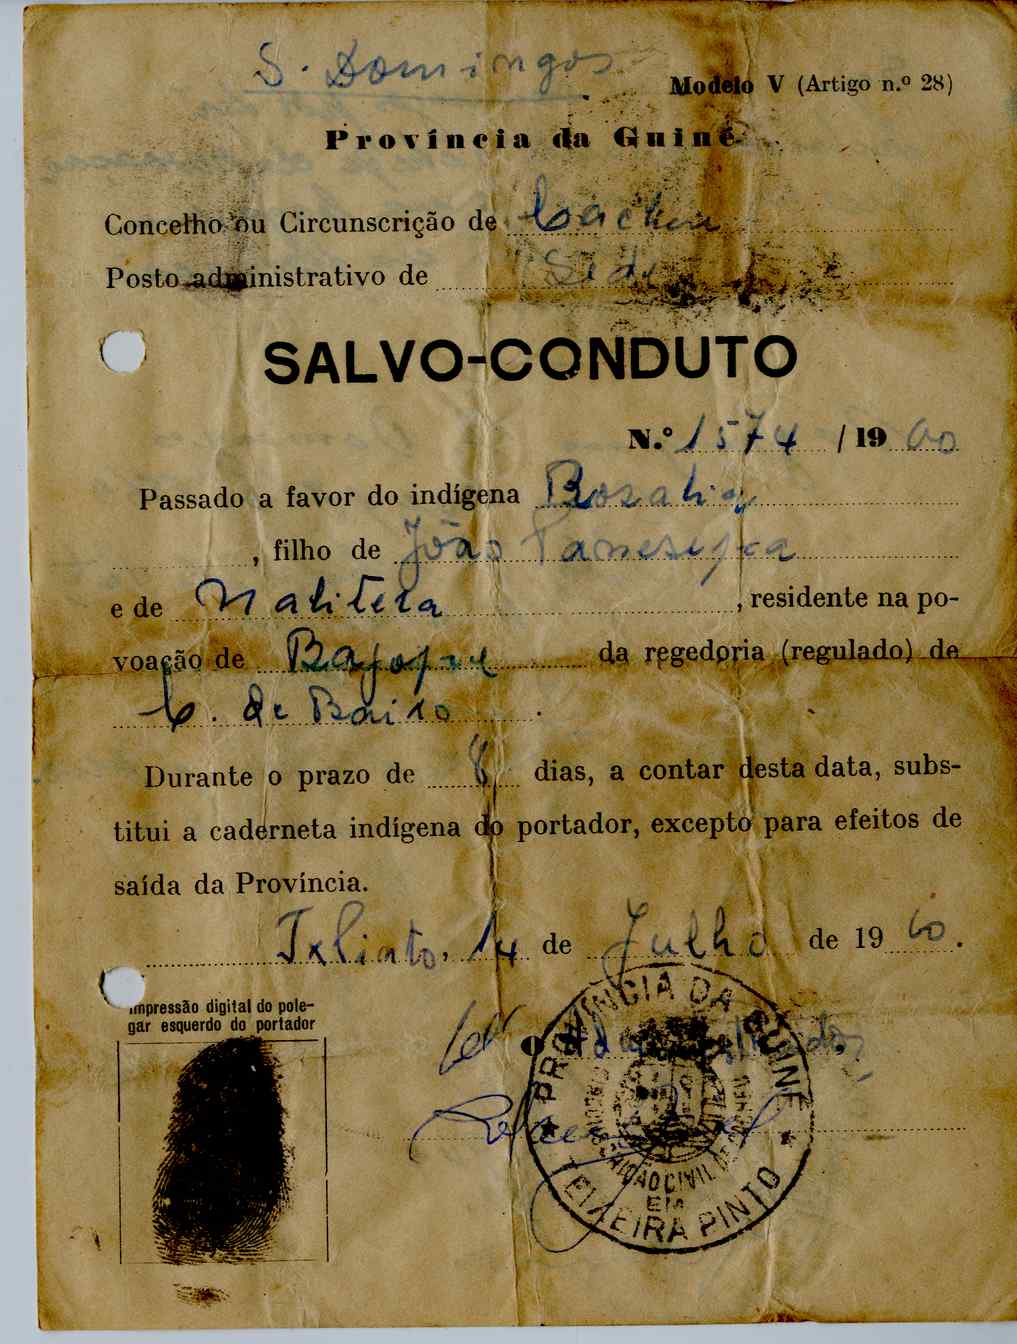 S. Domingos
Modelo V (Artigo n.º 28)
Província da Guiné
Concelho ou Circunscrição de Cacheu
Posto administrativo de Sede
SALVO-CONDUTO
N.º 1574 / 19 60
Passado a favor do indígena
, filho de João
e de , residente na po-
voação de da regedoria (regulado) de
C. de Baixo .
Durante o prazo de 8 dias, a contar desta data, subs-
titui a caderneta indígena do portador, excepto para efeitos de
saída da Província.
TxPinto, 14 de Julho de 19 60.
Impressão digital do pole-
gar esquerdo do portador
O
PROVÍNCIA DA GUINÉ
CIVIL
EM
TEIXEIRA PINTO